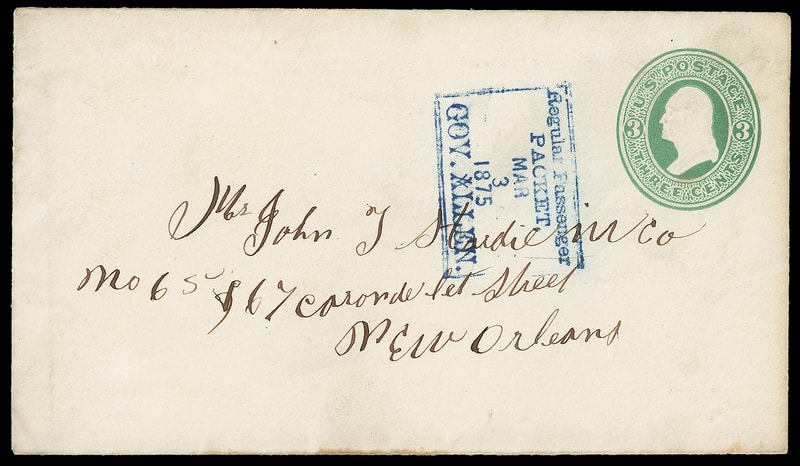 U.S. POSTAGE
3 3
THREE CENTS
Regular Passenger
PACKET
MAR
3
1875
GOV. ALLEN.
Mr John T Hardie
No 65 & 67 Caronde let Street
New Orleans